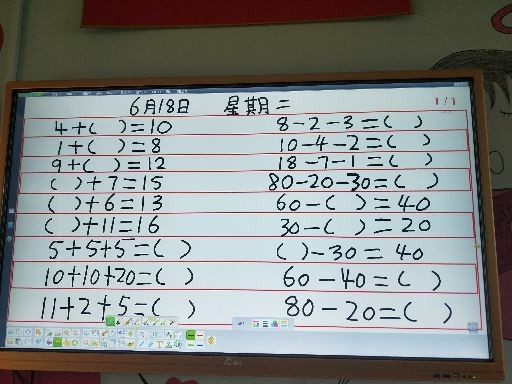 6月18日 星期二
1/1
4+( )=10 8-2-3=( )
1+( )=8 10-4-2=( )
9+( )=12 18-7-1=( )
( )+7=15 80-20-30=( )
( )+6=13 60-( )=40
( )+11=16 30-( )=20
5+5+5=( ) ( )-30=40
10+10+20=( ) 60-40=( )
11+2+5=( ) 80-20=( )